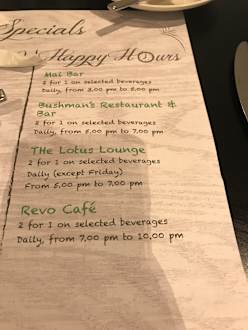 Specials
Happy Hours
Mai Bar
2 for 1 on selected beverages
Daily, from 3.00 pm to 5.00 pm
Bushman's Restaurant &
Bar
2 for 1 on selected beverages
Daily, from 5.00 pm to 7.00 pm
The Lotus Lounge
2 for 1 on selected beverages
Daily (except Friday)
From 5.00 pm to 7.00 pm
Revo Café
2 for 1 on selected beverages
Daily, from 7.00 pm to 10.00 pm